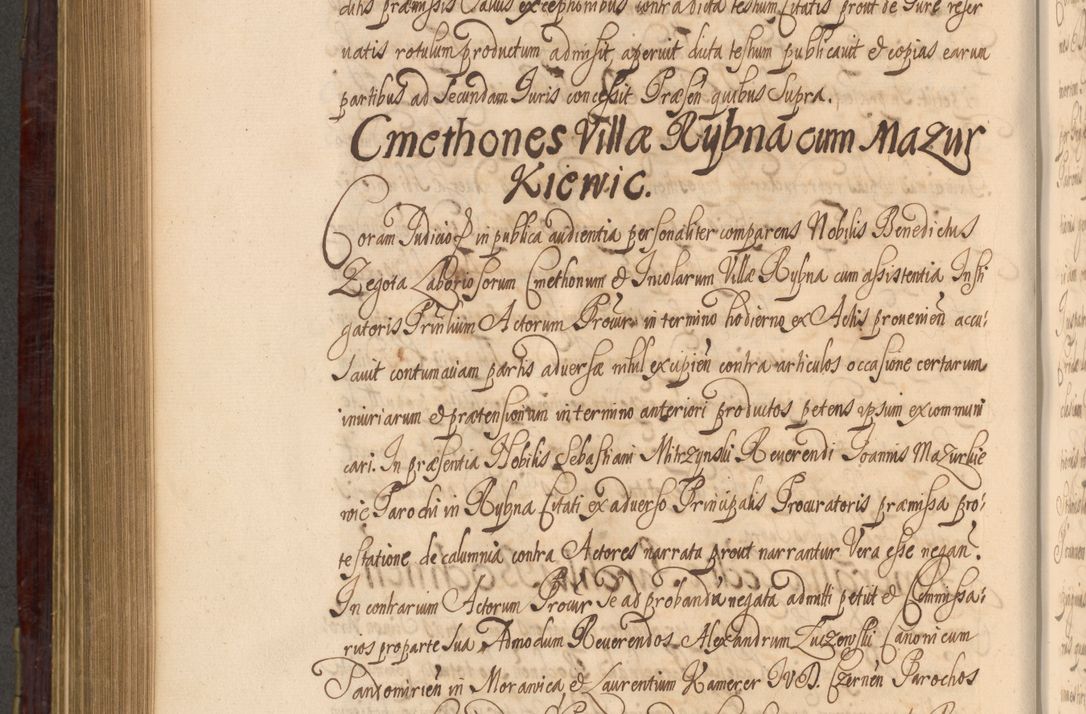 ditis præmissis Salvis exceptionibus contra dicta testium Citatis prout de Iure reser
vatis rotulum productum admisit, aperuit dicta testium publicavit et copias earum
partibus ad Secundam Iuris concessit Præsen quibus Supra.
Cmethones Villæ Rybna cum Mazur
Kiewic.
Coram Iudicio in publica audientia personaliter comparens Nobilis Benedictus
Zegota Laboriosorum Cmethonum et Incolarum Villæ Rybna cum assistentia Insti
gatoris Prinlium Actorum Procur in termino hodierno ex Actis provenien accu:
savit contumaciam partis adversæ nihil excipien contra articulos occasione certarum
iniuriarum et prætensionum in termino anteriori productos petens ipsum excommuni
cari. In præsentia Nobilis Sebastiani Mitrzynski Reverendi Ioannis Mazurkie
wic Parochi in Rybna Citati ex adverso Principalis Procuratoris præmissa pro:
testatione de calumnia contra Actores narrata prout narrantur Vera esse negan.
In contrarium Actorum Procur se ad probanda negata admitti petiit et Commissa:
rios pro parte Sua, Admodum Reverendos Alexandrum Łuczewski Canonicum
Sandomirien in Morawica et Laurentium Kamerer IVD. Czernen Parochos